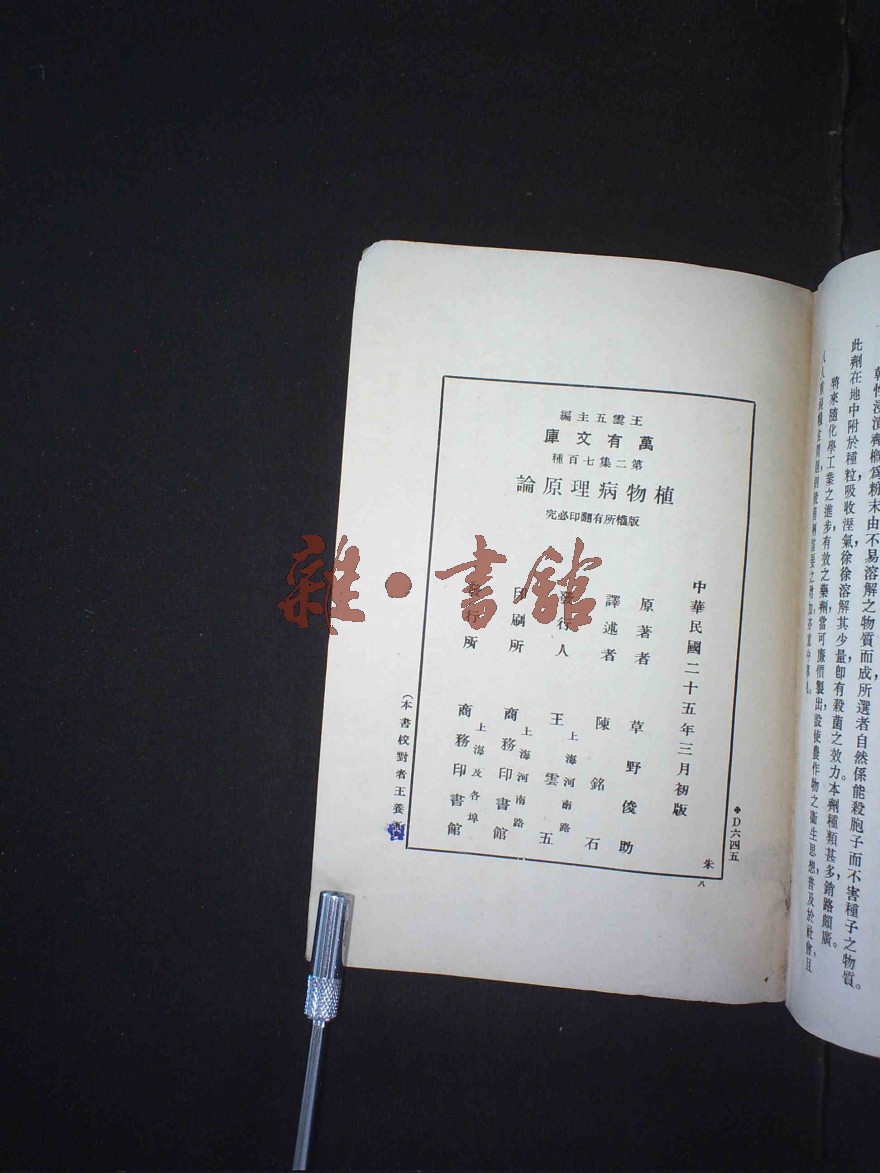 乾性浸漬齊概爲粉末由不易溶解之物質而成，所選者自然係能殺胞子而不害種子之物質。
此劑在地中附於種粒，吸收溼氣，徐徐溶解，其少量卽有殺菌之效力。本劑種類甚多，銷路頗廣。
將來隨化學工業之進步，有效之藥劑，當可廉價製出，設使農作物之衞生思想普及於社會，且
王雲五主編
萬有文庫
第二集七百種
植物病理原論
版權所有翻印必究
中華民國二十五年三月初版
原著者 草野俊助
譯述者 陳銘石
發行人 王雲五
上海河南路
印刷所 商務印書館
上海河南路
發行所 商務印書館
上海及各埠
（本書校對者王養
❖D六四五
朱
雜·書館